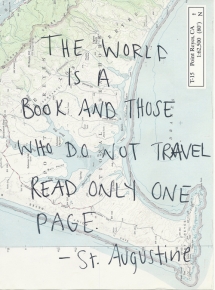 THE WORLD
IS A
BOOK AND THOSE
WHO DO NOT TRAVEL
READ ONLY ONE
PAGE.
- St. Augustine
T-15 Point Reyes, CA
1:62,500 (80')
N